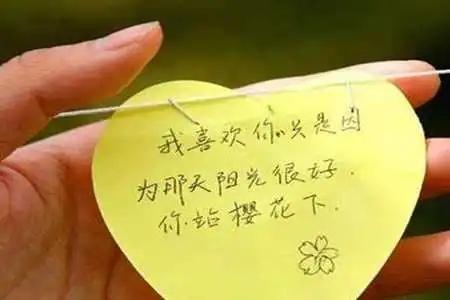 我喜欢你只是因
为那天阳光很好.
你站樱花下.